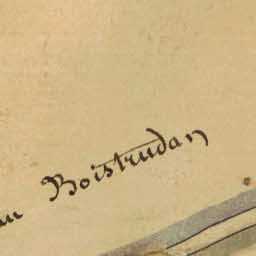 au Boistrudan